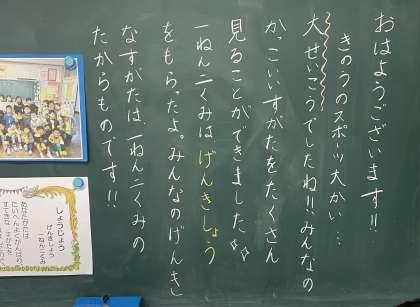 おはようございます!!
きのうのスポーツ大かい…
大せいこうでしたね!!みんなの
かっこいいすがたをたくさん
見ることができました
一ねん二くみは、げんきしょう
をもらったよ。みんなのげんき
なすがたは、一ねん二くみの
たからものです!!
しょうじょう
げんきしょう
一ねん二くみ
あなたがたは